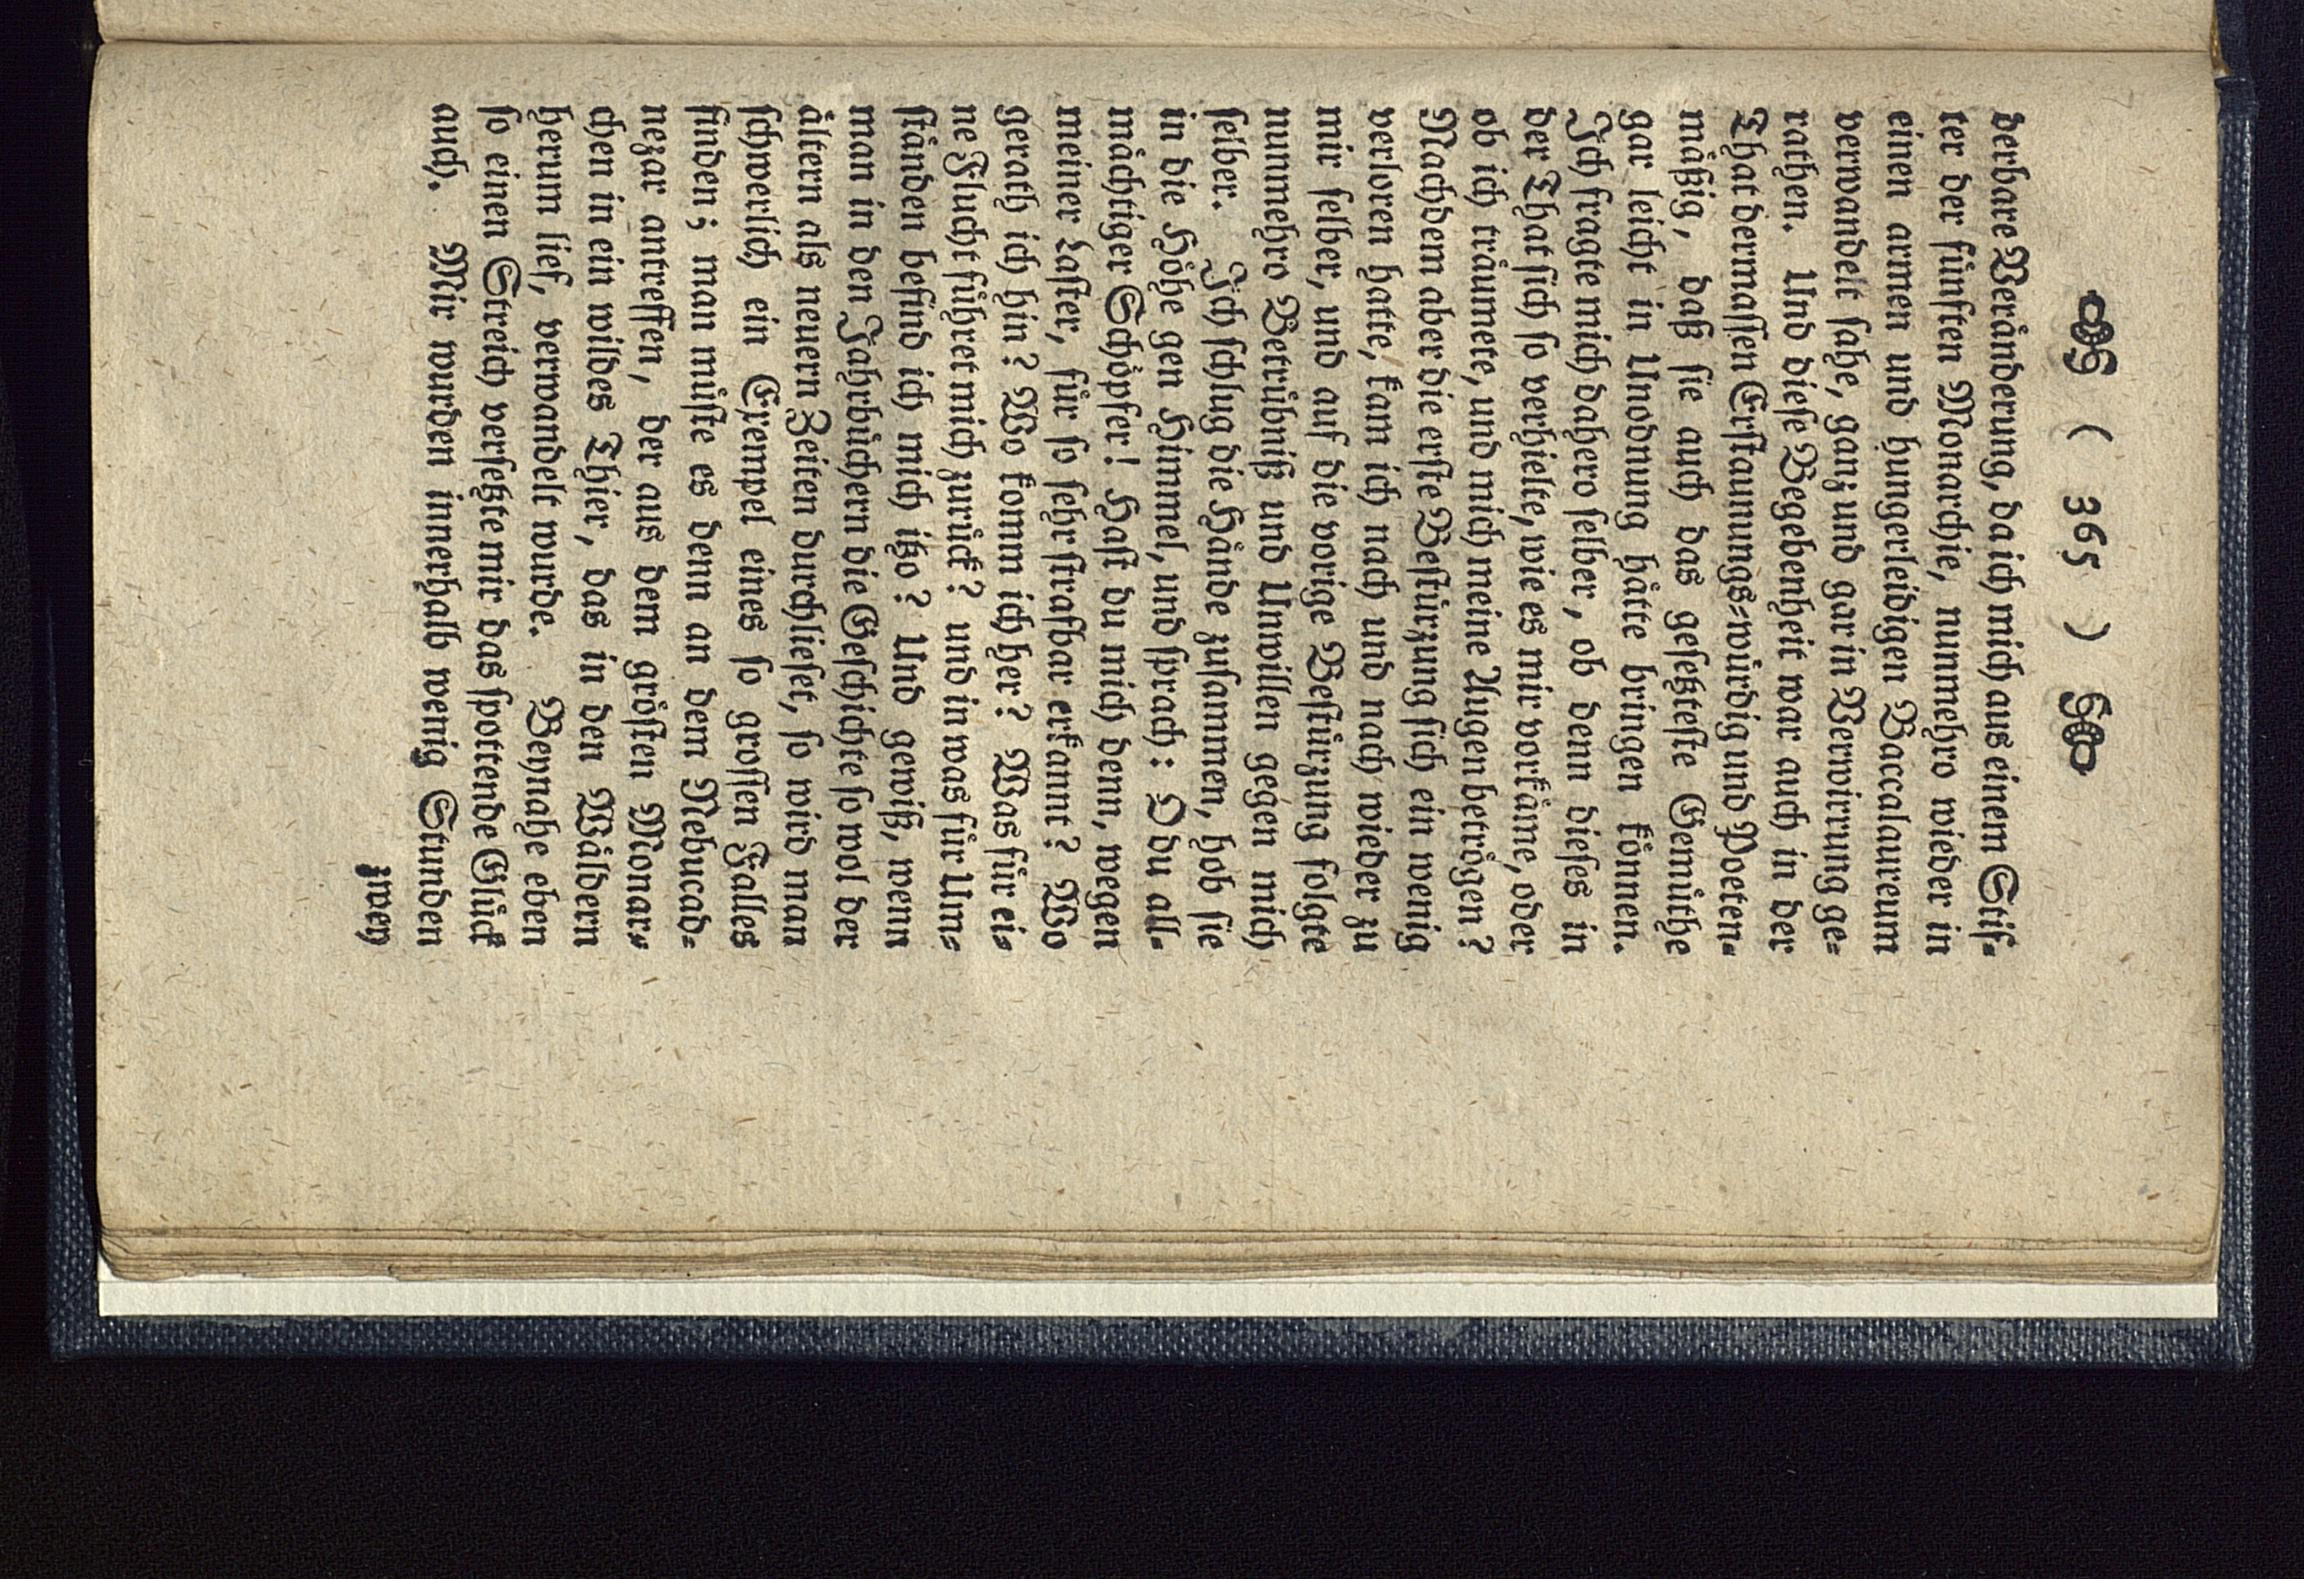 ( 365 )
derbare Veränderung, da ich mich aus einem Stif⸗
ter der fünften Monarchie, nunmehro wieder in
einen armen und hungerleidigen Baccalaureum
verwandelt sahe, ganz und gar in Verwirrung ge⸗
rathen. Und diese Begebenheit war auch in der
That dermassen Erstaunungs⸗würdig und Poeten⸗
mäßig, daß sie auch das gesetzteste Gemüthe
gar leicht in Unodnung hätte bringen können.
Ich fragte mich dahero selber, ob denn dieses in
der That sich so verhielte, wie es mir vorkäme, oder
ob ich träumete, und mich meine Augen betrögen?
Nachdem aber die erste Bestürzung sich ein wenig
verloren hatte, kam ich nach und nach wieder zu
mir selber, und auf die vorige Bestürzung folgte
nunmehro Betrübniß und Unwillen gegen mich
selber. Ich schlug die Hände zusammen, hob sie
in die Höhe gen Himmel, und sprach: O du all⸗
mächtiger Schöpfer! Hast du mich denn, wegen
meiner Laster, für so sehr strafbar erkannt? Wo
gerath ich hin? Wo komm ich her? Was für ei⸗
ne Flucht führet mich zurück? und in was für Um⸗
ständen befind ich mich itzo? Und gewiß, wenn
man in den Jahrbüchern die Geschichte so wol der
ältern als neuern Zeiten durchlieset, so wird man
schwerlich ein Exempel eines so grossen Falles
finden; man müste es denn an dem Nebucad⸗
nezar antreffen, der aus dem grösten Monar⸗
chen in ein wildes Thier, das in den Wäldern
herum lief, verwandelt wurde. Beynahe eben
so einen Streich versetzte mir das spottende Glück
auch. Mir wurden innerhalb wenig Stunden
zwey